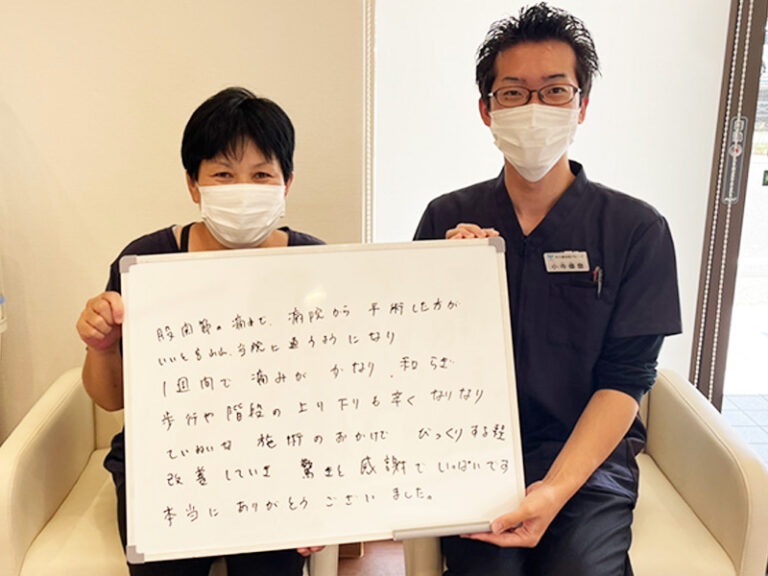 股関節の痛みで、病院から 手術した方が
いいと言われ、当院に通うようになり
1週間で 痛みが かなり、和らぎ
歩行や階段の上り下りも辛く なくなり
ていねいな 施術のおかげで びっくりする程
改善していき 驚きと感謝でいっぱいです
本当に ありがとう ございました。